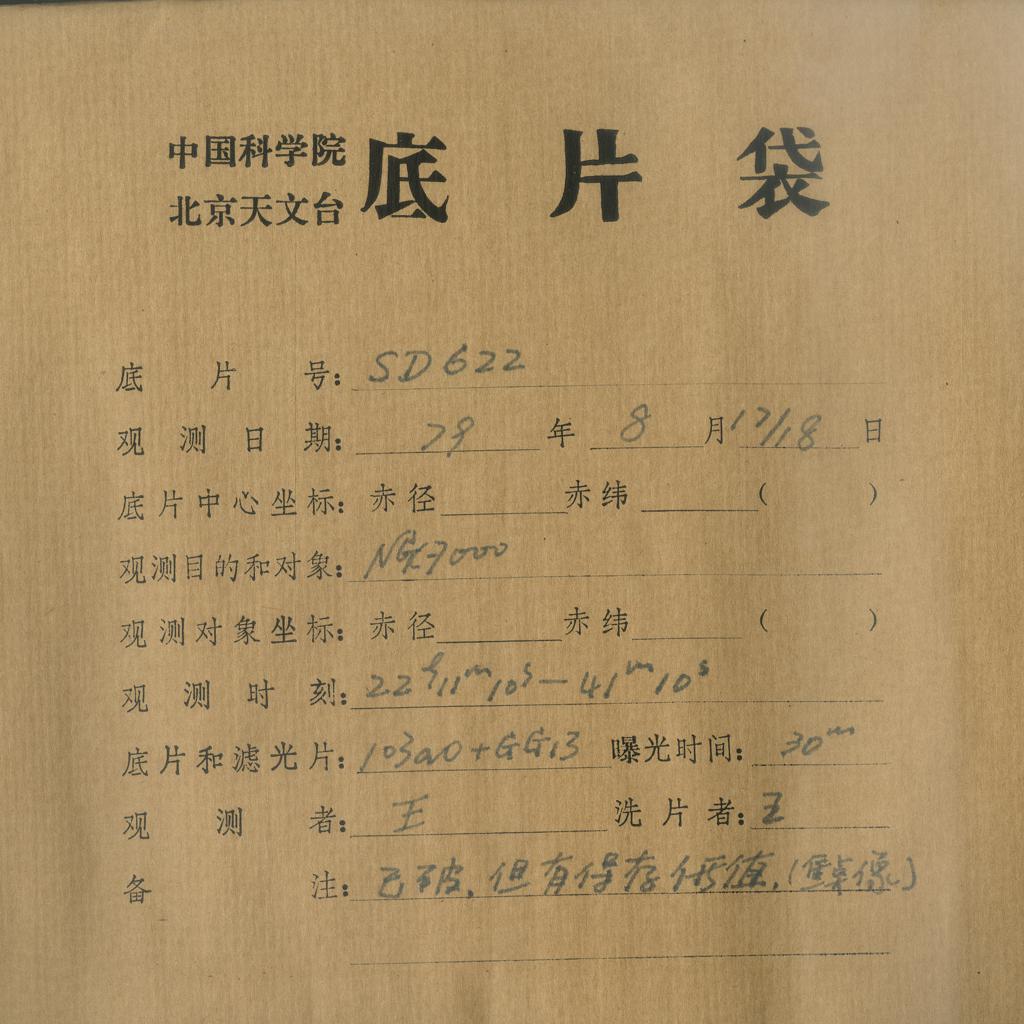 中国科学院
北京天文台
底片袋
底片号: SD622
观测日期: 79年8月17/18日
底片中心坐标: 赤径 赤纬 ( )
观测目的和对象: NGC7000
观测对象坐标: 赤径 赤纬 ( )
观测时刻: 22h11m10s—41m10s
底片和滤光片: 103aO+GG13 曝光时间: 30m
观测者: 王 洗片者: 王
备注: 已破,但有保存价值,(像)